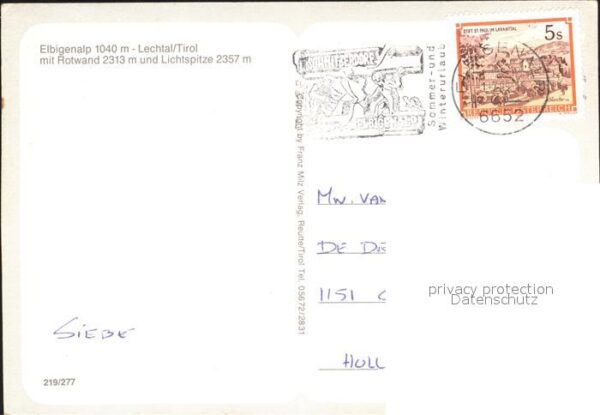 Elbigenalp 1040 m - Lechtal/Tirol
mit Rotwand 2313 m und Lichtspitze 2357 m
Sommer- und
Winterurlaub
STIFT ST. PAUL IM LAVANTTAL
5s
6652
© Copyright by Franz Milz Verlag, Reutte/Tirol Tel. 05672/2831
MW. VAN
DE DIE
1151 C
HOLL
privacy protection
Datenschutz
SIEBE
219/277